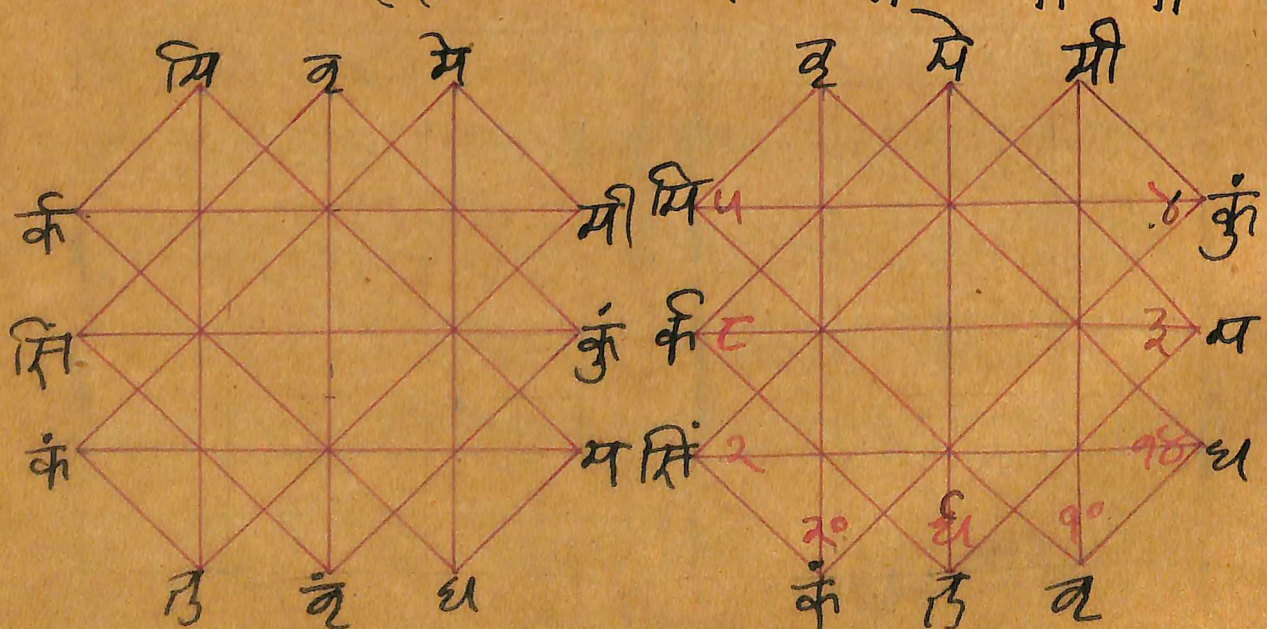 मि वृ मे
र्क मी
सिं कुं
कं म
तु वृं ध
वृ मे मी
मि ५ ४ कुं
र्क ८ ३ म
सिं २ १४ ध
२० १०
कं तु वृ